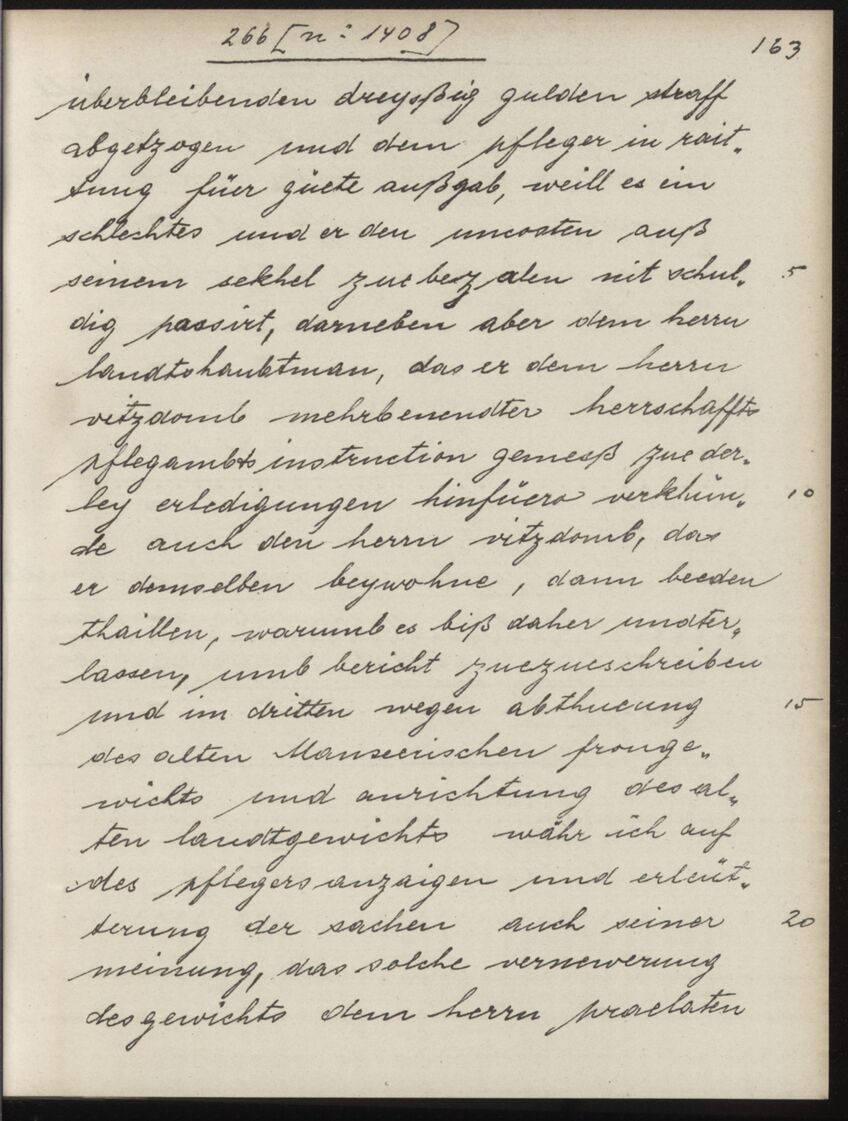 266 [n: 1408]
163
überbleibenden dreyßig gulden straff
abgetzogen und dem pfleger in rait„
tung füer güete außgab, weill es ein
schlechtes und er den uncosten auß
seinem sekhel zue bezalen nit schul„ 5
dig passirt, darneben aber dem herrn
landtshaubtman, das er dem herrn
vitzdomb mehrbenendter herrschaffts
pflegambts instruction gemeß zue der„
ley erledigungen hinfüero verkhün„ 10
de auch den herrn vitzdomb, das
er demselben beywohne, dann beeden
thaillen, warumb es biß daher undter„
lassen, umb bericht zuezueschreiben
und im dritten wegen abthueung 15
des alten Manseerischen fronge„
wichts und anrichtung des al„
ten landtgewichts währ ich auf
des pflegers anzaigen und erleüt„
terung der sachen auch seiner 20
meinung, das solche vernewerung
des gewichts dem herrn praelaten